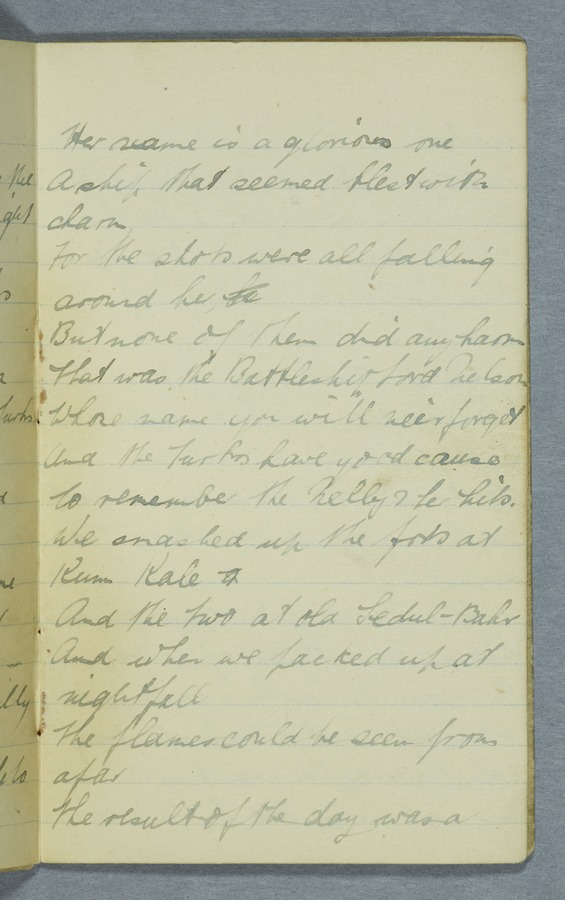 the
ght
Turks
lly
Her name is a glorious one
A ship that seemed blest with
charm
For the shots were all falling
around her,
But none of them did any harm
That was the Battleship Lord Nelson
Whose name you will ne'er forget
And the Turks have good cause
to remember the Nelly & her hits.
We smashed up the forts at
Kum Kale
And the two at old Sedul-Bahr
And when we packed up at
nightfall
The flames could be seen from
afar
The result of the day was a